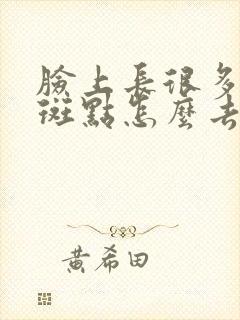 臉上長很多
斑點怎麼去
黃希田